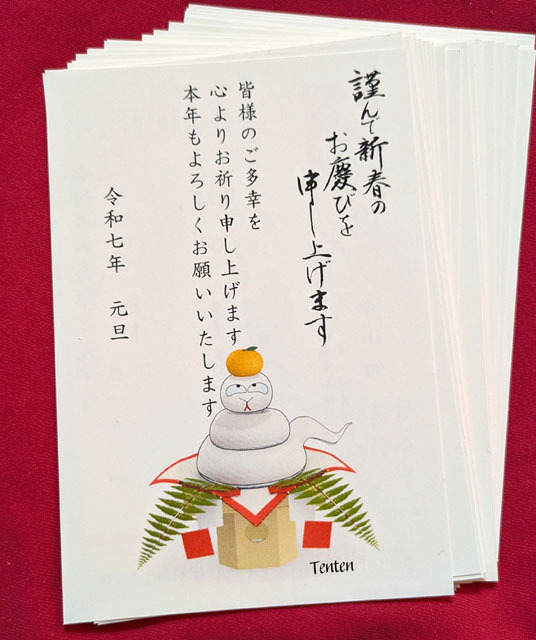 謹んで新春の
お慶びを
申し上げます
皆様のご多幸を
心よりお祈り申し上げます
本年もよろしくお願いいたします
令和七年 元旦
Tenten